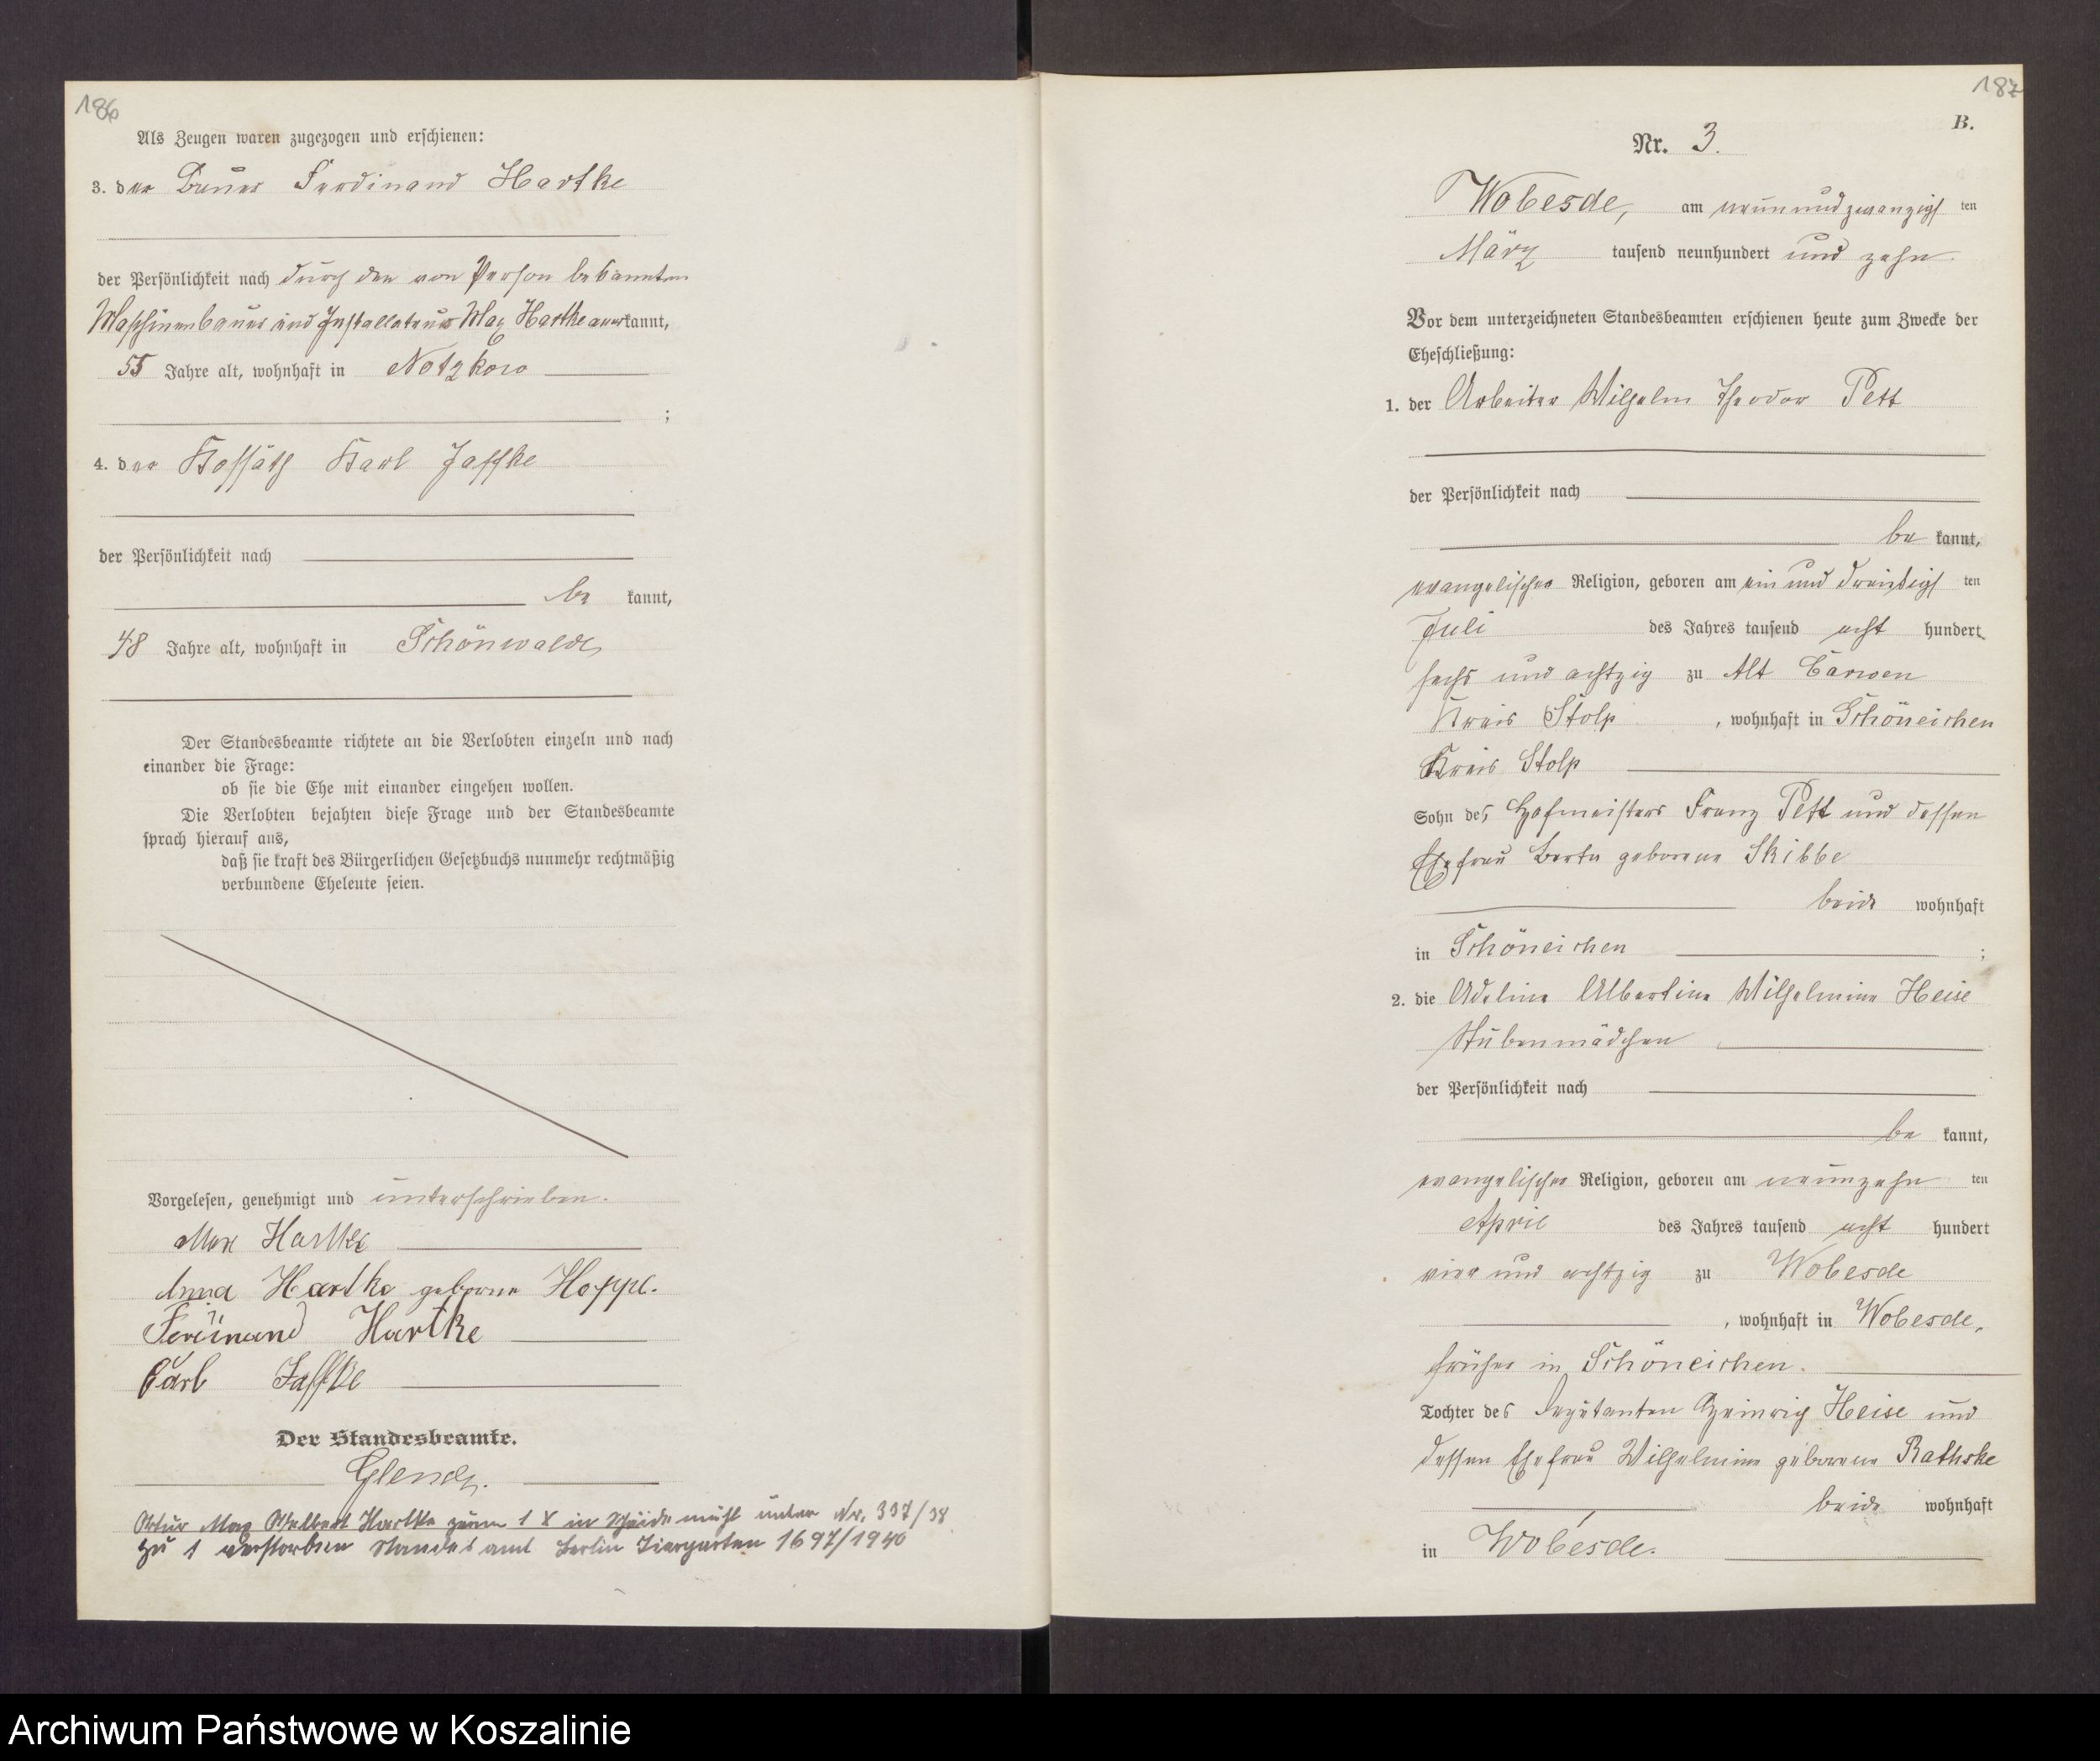 186
Als Zeugen waren zugezogen und erschienen:
3. der Bauer Ferdinand Hartke
der Persönlichkeit nach durch den von Person bekannten
Maschinenbauer und Installateur Max Hartke anerkannt,
55 Jahre alt, wohnhaft in Notzkow
;
4. der Kossäth Karl Jaffke
der Persönlichkeit nach
be kannt,
48 Jahre alt, wohnhaft in Schönwalde
Der Standesbeamte richtete an die Verlobten einzeln und nach
einander die Frage:
ob sie die Ehe mit einander eingehen wollen.
Die Verlobten bejahten diese Frage und der Standesbeamte
sprach hierauf aus,
daß sie kraft des Bürgerlichen Gesetzbuchs nunmehr rechtmäßig
verbundene Eheleute seien.
Vorgelesen, genehmigt und unterschrieben.
Max Hartke
Anna Hartke geborene Hoppe.
Ferdinand Hartke
Carl Jaffke
Der Standesbeamte.
Glend
Max Hartke 1 in unter Nr. 337/38
Zu 1 verstorben Standesamt Berlin Tiergarten 1697/1940
187
B.
Nr. 3.
Wobesde, am neunundzwanzigs ten
März tausend neunhundert und zehn
Vor dem unterzeichneten Standesbeamten erschienen heute zum Zwecke der
Eheschließung:
1. der Arbeiter Wilhelm Theodor Pett
der Persönlichkeit nach
be kannt,
evangelischer Religion, geboren am ein und dreißigs ten
Juli des Jahres tausend acht hundert
sechs und achtzig zu Alt Carwen
Kreis Stolp, wohnhaft in Schöneichen
Kreis Stolp
Sohn des Hofmeisters Franz Pett und dessen
Ehefrau Berta geborene Skibbe
beide wohnhaft
in Schöneichen ;
2. die Adeline Albertine Wilhelmine Heise
Stubenmädchen
der Persönlichkeit nach
be kannt,
evangelischer Religion, geboren am neunzehn ten
April des Jahres tausend acht hundert
vier und achtzig zu Wobesde
, wohnhaft in Wobesde,
früher in Schöneichen.
Tochter des Deputanten Heinrich Heise und
dessen Ehefrau Wilhelmine geborene Rathske
beide wohnhaft
in Wobesde.
Archiwum Państwowe w Koszalinie